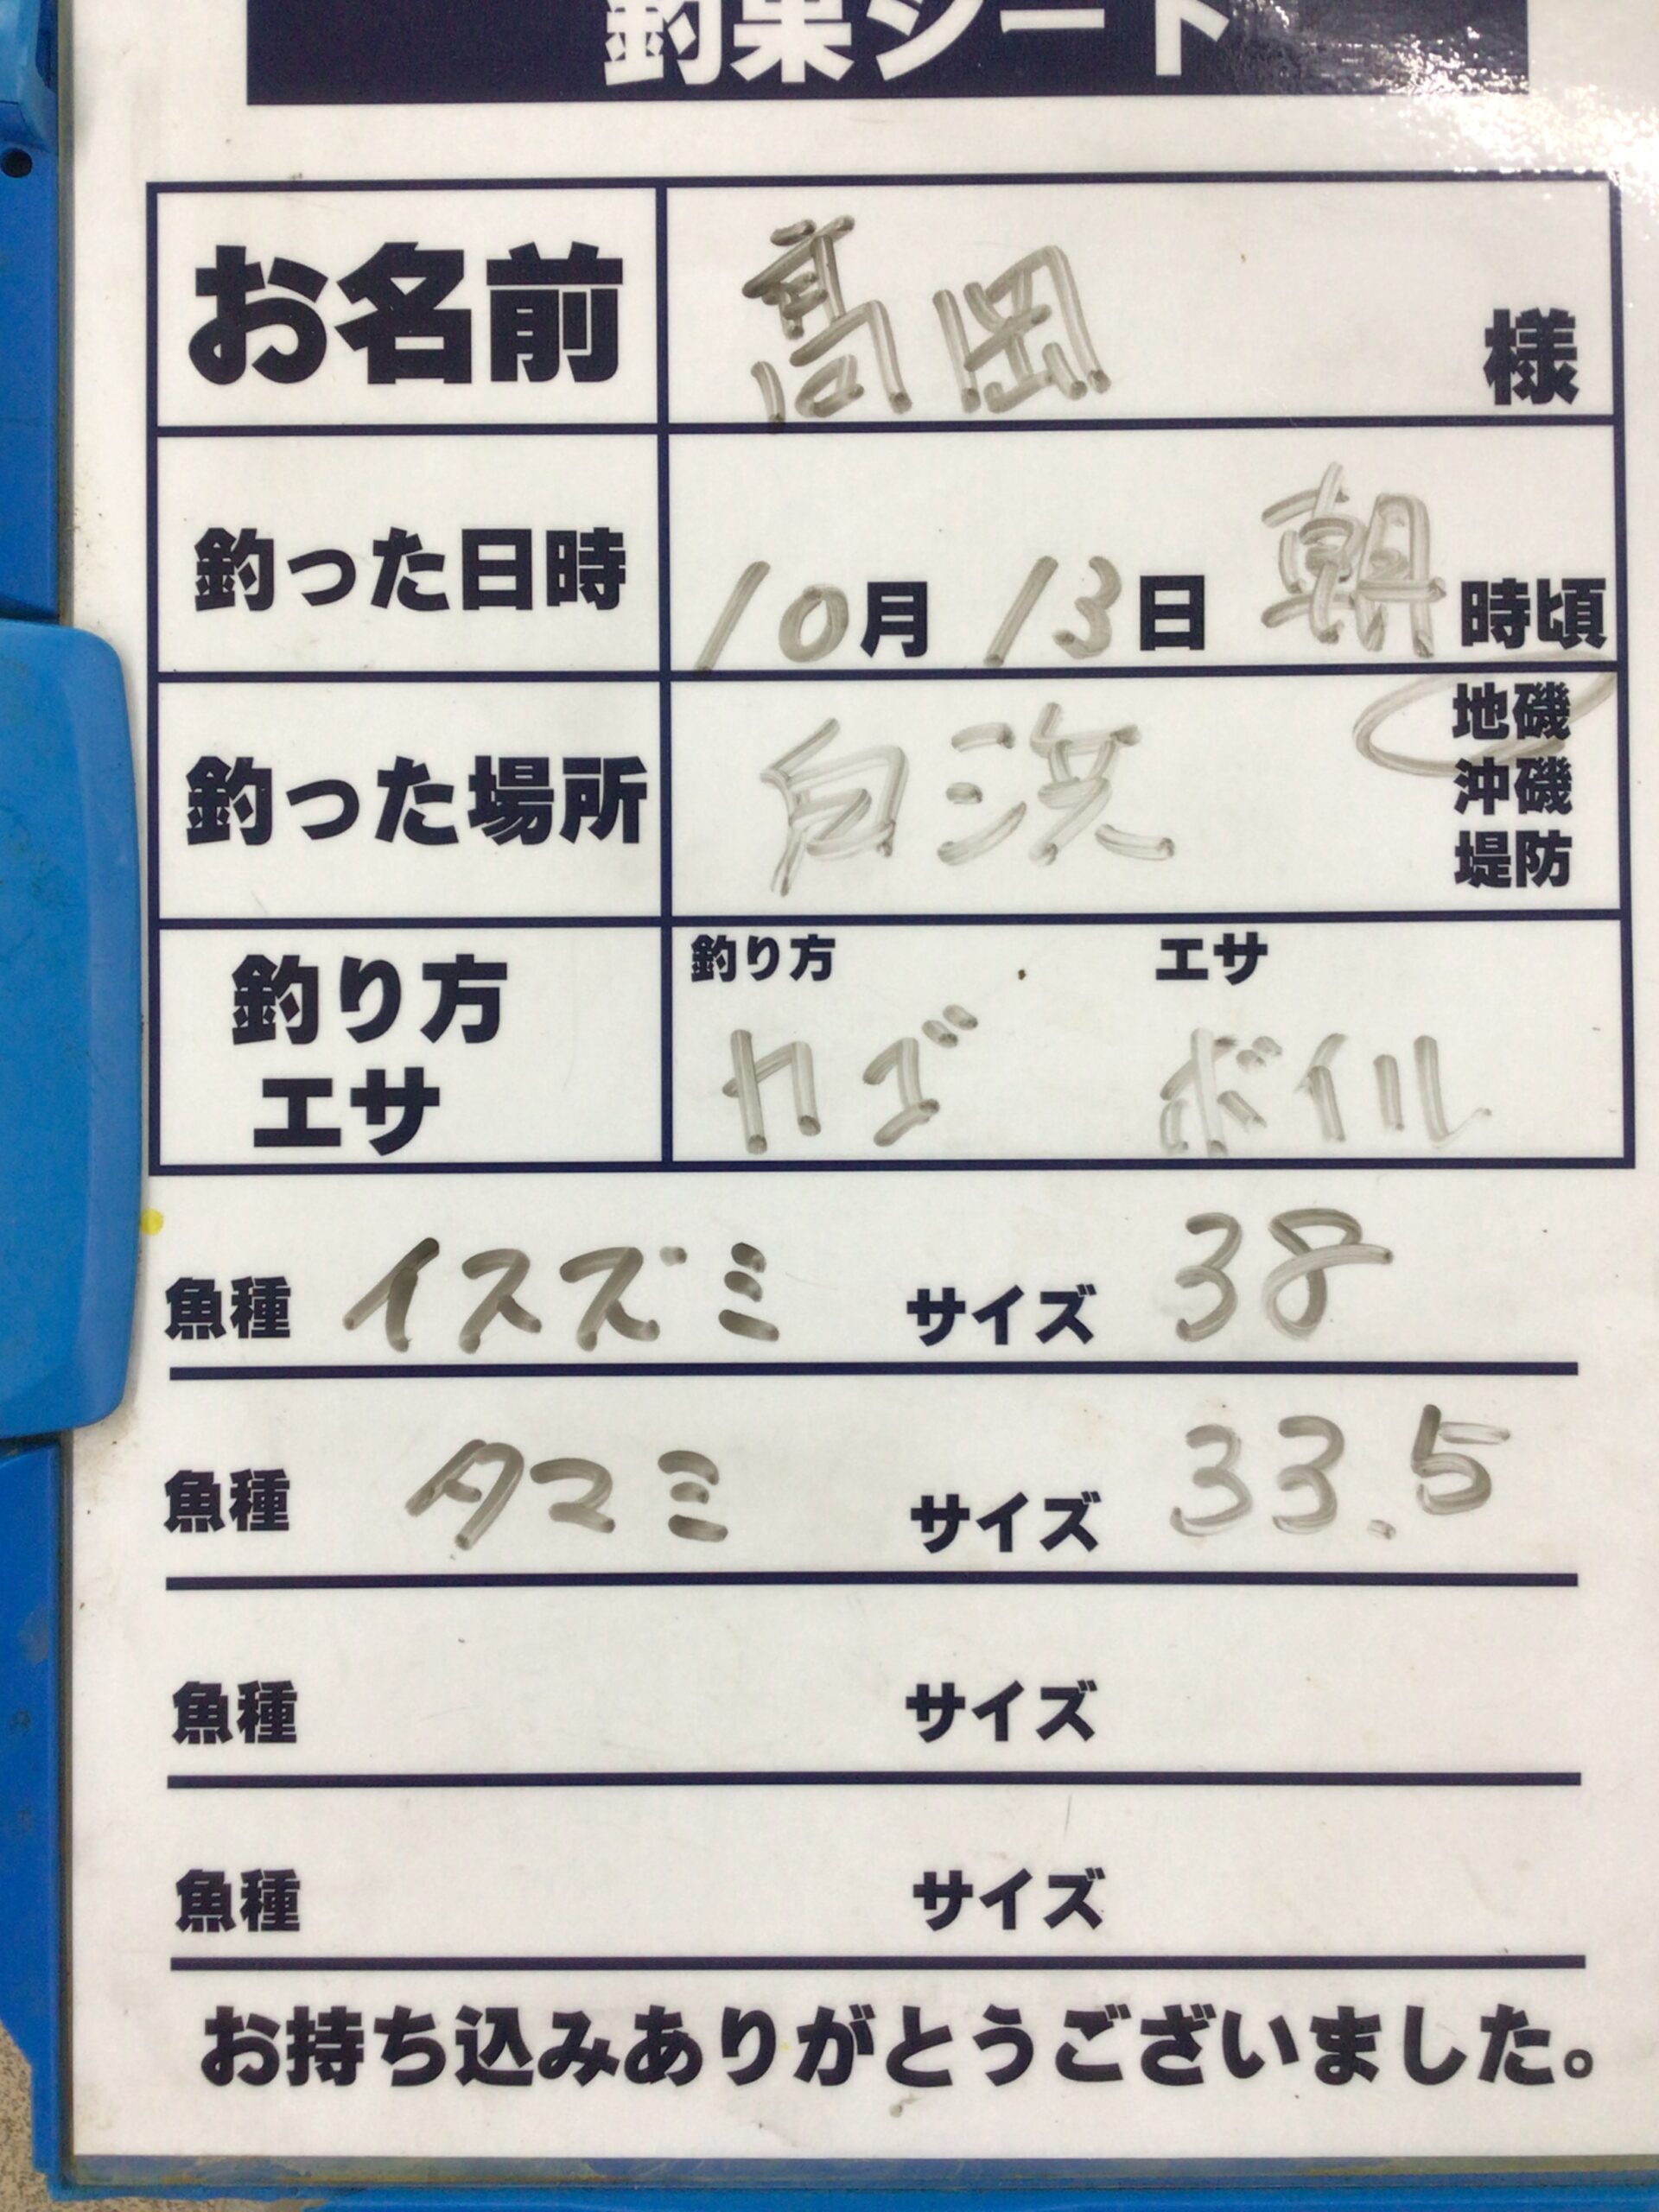 釣果シート
お名前 髙岡 様
釣った日時 10月 13日 朝 時頃
釣った場所 白浜 地磯
沖磯
堤防
釣り方 エサ
釣り方
エサ
カゴ ボイル
魚種 イスズミ サイズ 38
魚種 タマミ サイズ 33.5
魚種 サイズ
魚種 サイズ
お持ち込みありがとうございました。